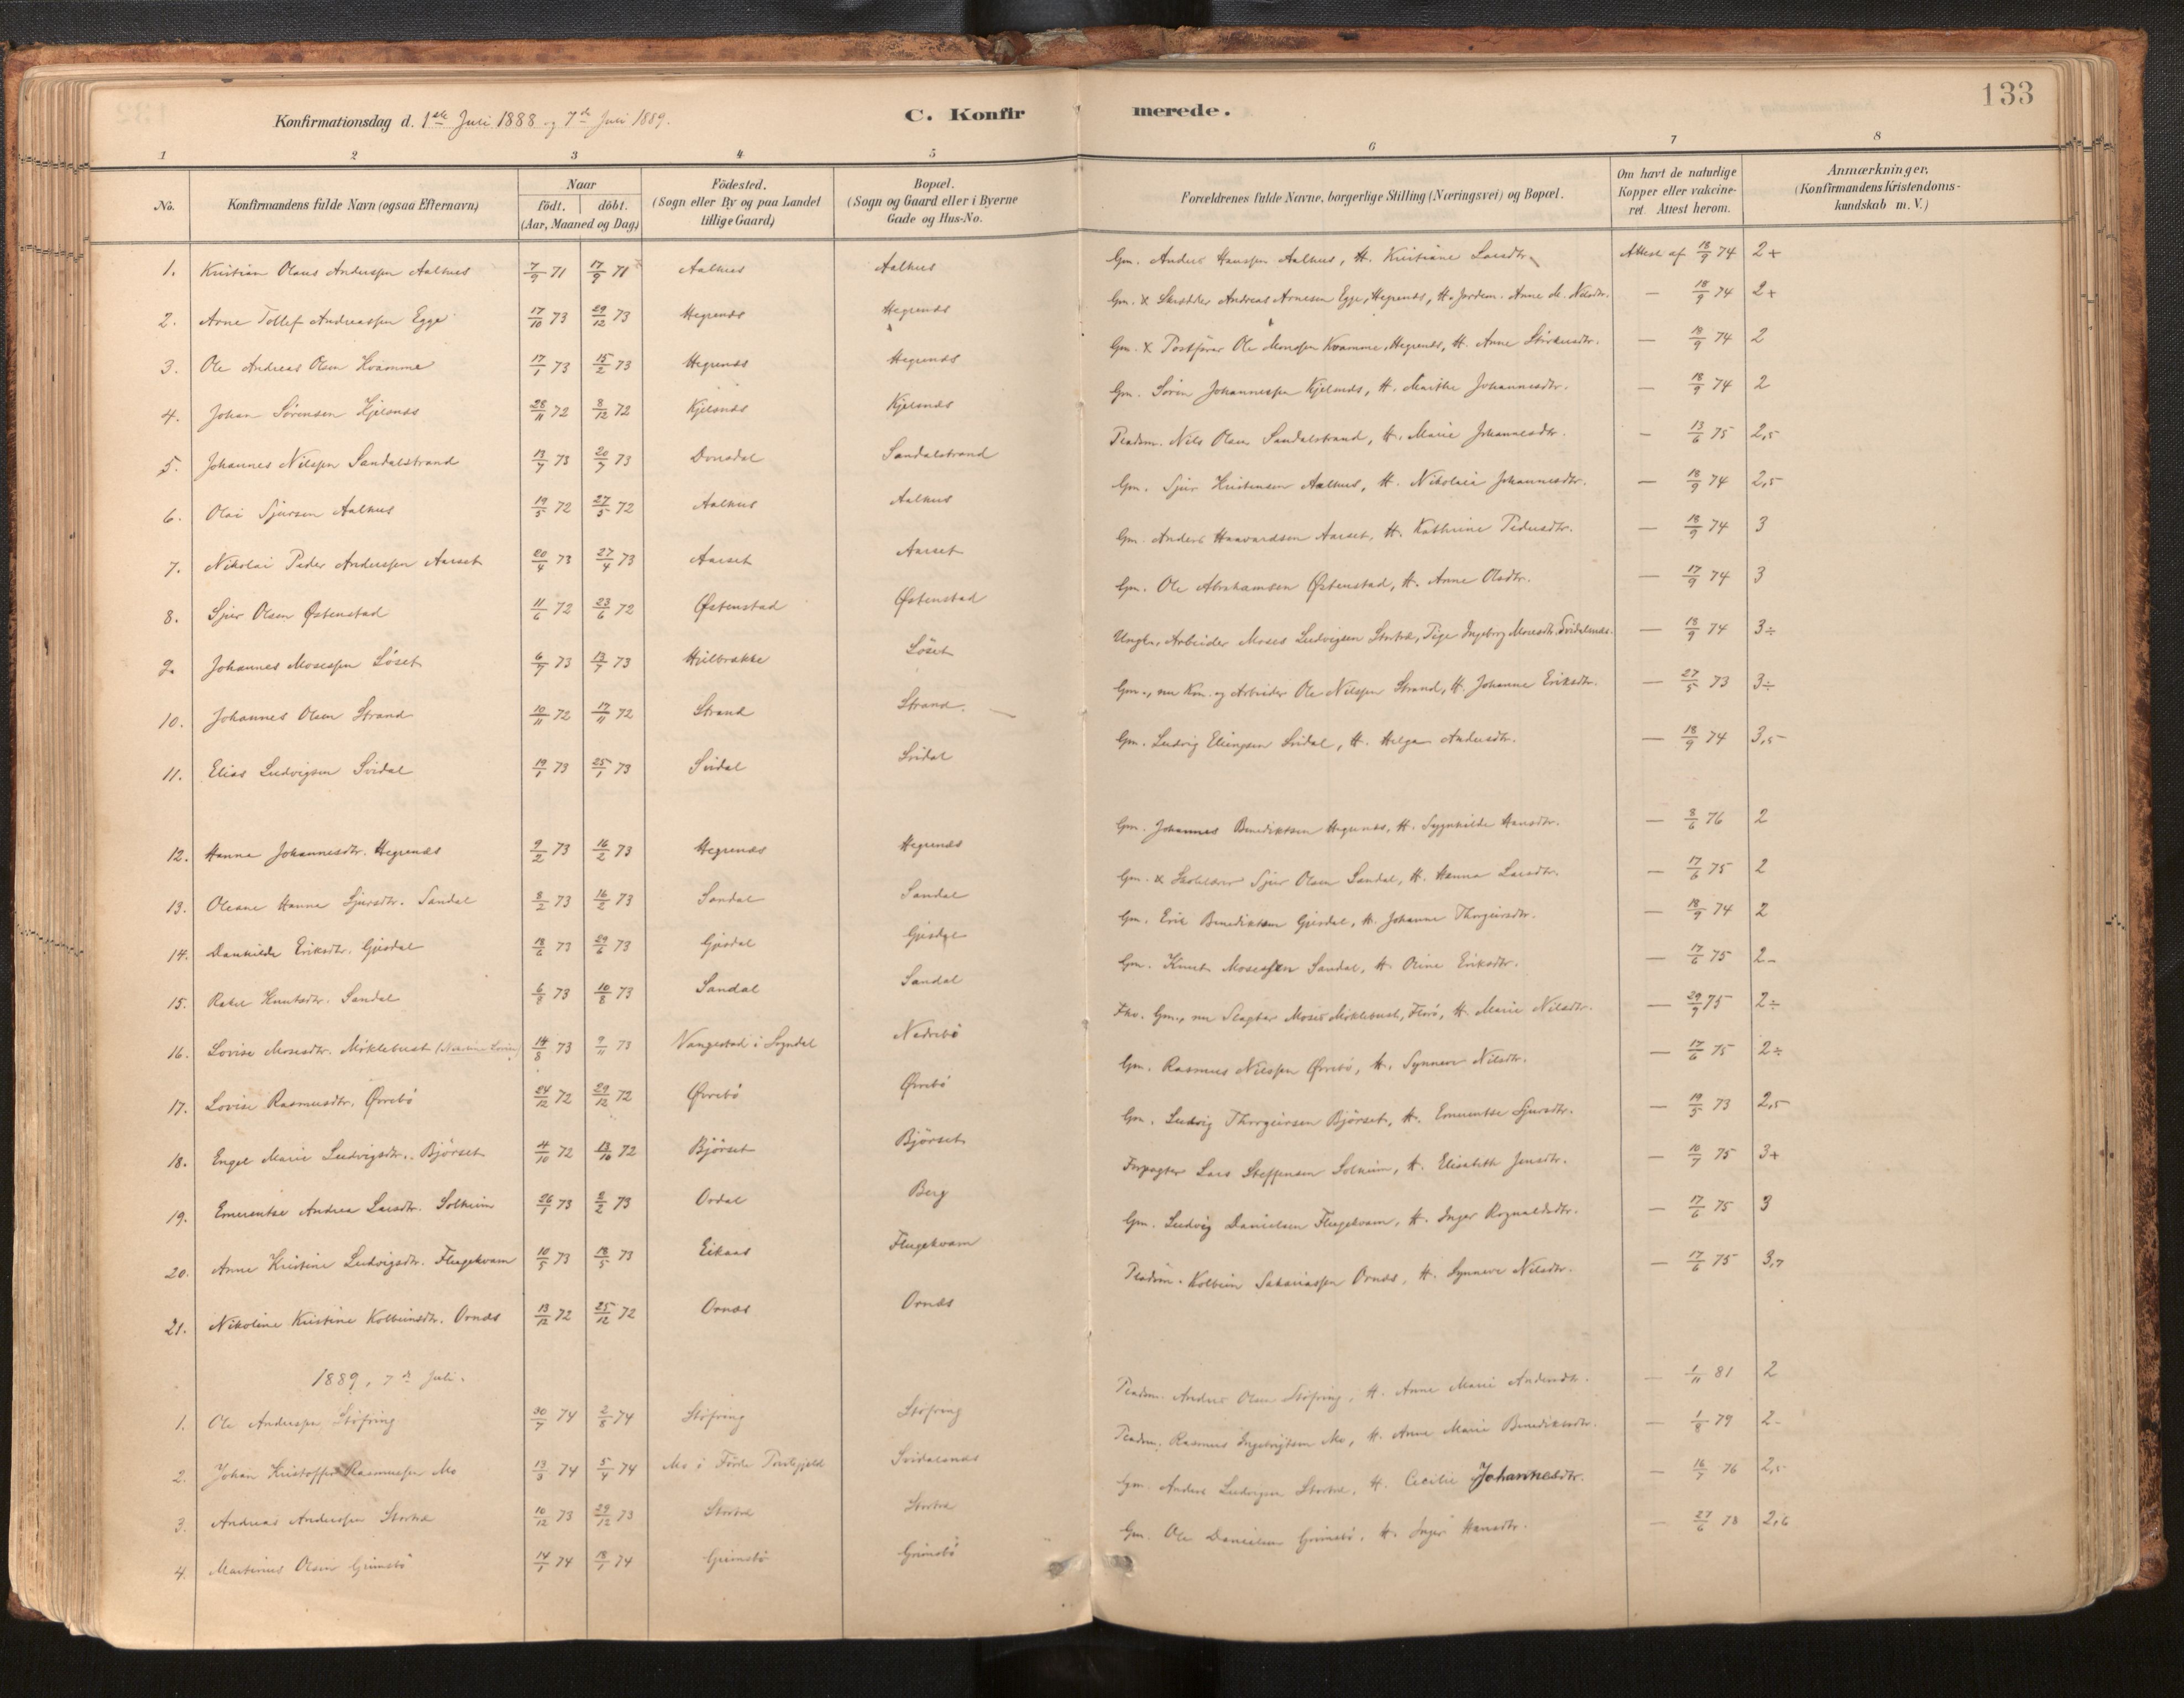 133
Konfirmationsdag d. 1ste Juli 1888 og 7de Juli 1889.
C. Konfirmerede.
1 2 3 4 5 6 7 8
No.
Konfirmandens fulde Navn (ogsaa Efternavn)
Naar
födt. döbt.
(Aar, Maaned og Dag)
Födested.
(Sogn eller By og paa Landet
tillige Gaard)
Bopæl.
(Sogn og Gaard eller i Byerne
Gade og Hus-No.
Forældrenes fulde Navne, borgerlige Stilling (Næringsvei) og Bopæl.
Om havt de naturlige
Kopper eller vakcine-
ret. Attest herom.
Anmærkninger,
(Konfirmandens Kristendoms-
kundskab m. V.)
1. Kristian Olaus Anderssen Aalhus 7/9 71 17/9 71 Aalhus Aalhus Gm. Anders Hanssen Aalhus, H. Kristiane Larsdtr. Attest af 18/9 74 2+
2. Arne Tollef Andreassen Egge 17/10 73 29/12 73 Hegrenæs Hegrenæs Gm. & Skrædder Andreas Arnesen Egge, Hegrenæs, H. Jordem. Anne M. Nilsdtr. — 18/9 74 2+
3. Ole Andreas Olsen Kvamme 17/1 73 15/2 73 Hegrenæs Hegrenæs Gm. & Postförer Ole Monssen Kvamme, Hegrenæs, H. Anne — 18/9 74 2
4. Johan Sörensen Kjelsnæs 28/11 72 8/12 72 Kjelsnæs Kjelsnæs Gm. Sören Johannessen Kjelsnæs, H. Marthe Johannesdtr. — 18/9 74 2
5. Johannes Nilssen Sandalstrand 13/7 73 20/7 73 Dvergsdal Sandalstrand Pladsm. Nils Olsen Sandalstrand, H. Marie Johannesdtr. — 13/6 75 2,5
6. Olai Sjursen Aalhus 19/5 72 27/5 72 Aalhus Aalhus Gm. Sjur Kristensen Aalhus, H. Nikolaia Johannesdtr. — 18/9 74 2,5
7. Nikolai Peder Anderssen Aarset 20/4 73 27/4 73 Aarset Aarset Gm. Anders Haavardsen Aarset, H. Kathrine Pedersdtr. — 18/9 74 3
8. Sjur Olsen Østenstad 11/6 72 23/6 72 Østenstad Østenstad Gm. Ole Abrahamsen Østenstad, H. Anne Olsdtr. — 17/9 74 3
9. Johannes Mosessen Löset 6/7 73 13/7 73 Hjelbrække Löset Ungk. Arbeider Moses Ludvigsen Stortræ, Pige Ingeborg Mosesdtr. Svidalsnæs. — 18/9 74 3÷
10. Johannes Olsen Strand 10/11 72 17/11 72 Strand Strand. Gm., nu Km. og Arbeider Ole Nilssen Strand, H. Johanne Eriksdtr. — 27/5 73 3÷
11. Elias Ludvigsen Svidal 19/1 73 25/1 73 Svidal Svidal Gm. Ludvig Elingsen Svidal, H. Helga Andersdtr. — 18/9 74 3,5
12. Hanna Johannesdtr. Hegrenæs 9/2 73 16/2 73 Hegrenæs Hegrenæs Gm. Johannes Benediktsen Hegrenæs, H. Hansdtr. — 8/6 76 2
13. Oleane Hanna Sjursdtr. Sandal 8/2 73 16/2 73 Sandal Sandal Gm. & Skolelærer Sjur Olsen Sandal, H. Hanna Larsdtr. — 17/6 75 2
14. Danhilde Eriksdtr. Gjesdal 18/6 73 29/6 73 Gjesdal Gjesdal Gm. Erik Benediktsen Gjesdal, H. Johanne Thorgeirsdtr. — 18/9 74 2
15. Rakel Knutsdtr. Sandal 6/8 73 10/8 73 Sandal Sandal Gm. Knut Mosessen Sandal, H. Oline Eriksdtr. — 17/6 75 2-
16. Lovise Mosesdtr. Myklebust 14/8 73 9/11 73 Vangestad i Sogndal Nedrebö Fhv. Gm., nu Moses Myklebust, Florö, H. Marie Nilsdtr. — 29/9 75 2÷
17. Lovise Rasmusdtr. Øvrebö 24/12 72 29/12 72 Øvrebö Øvrebö Gm. Rasmus Nilssen Øvrebö, H. Synneve Nilsdtr. — 17/6 75 2÷
18. Engel Marie Ludvigsdtr. Bjôrset 4/10 72 13/10 72 Bjôrset Bjôrset Gm. Ludvig Thorgeirsen Bjôrset, H. Emerentse Sjursdtr. — 19/5 73 2,5
19. Emerentse Andrea Larsdtr. Solheim 26/1 73 2/2 73 Ordal Berg Forpagter Lars Steffensen Solheim, H. Elisabeth Jensdtr. — 10/7 75 3+
20. Anne Kristine Ludvigsdtr. Flugekvam 10/5 73 18/5 73 Eikaas Flugekvam Gm. Ludvig Danielsen Flugekvam, H. Inger Rognaldsdtr. — 17/6 75 3
21. Nikoline Kristine Kolbeinsdtr. Ornæs 13/12 72 25/12 72 Ornæs Ornæs Pladsm. Kolbein Sakariassen Ornæs, H. Synneve Nilsdtr. — 17/6 75 3,7
1889, 7de Juli.
1. Ole Anderssen Stöfring 30/7 74 2/8 74 Stöfring Stöfring Pladsm. Anders Olsen Stöfring, H. Anne Marie Andersdtr. — 1/11 81 2
2. Johan Kristoffer Rasmussen Mo 13/3 74 5/4 74 Mo i Förde Præstegjeld Svidalsnæs Pladsm. Rasmus Ingebrigtsen Mo, H. Anne Marie Benediktsdtr. — 1/8 79 2-
3. Andreas Anderssen Stortræ 10/12 73 29/12 73 Stortræ Stortræ Gm. Anders Ludvigsen Stortræ, H. Cecilie Johannesdtr. — 16/7 76 2,5
4. Martinus Olsen Grimsbö 14/1 74 18/1 74 Grimsbö Grimsbö Gm. Ole Danielsen Grimsbö, H. Inger Hansdtr. — 27/6 78 2,6